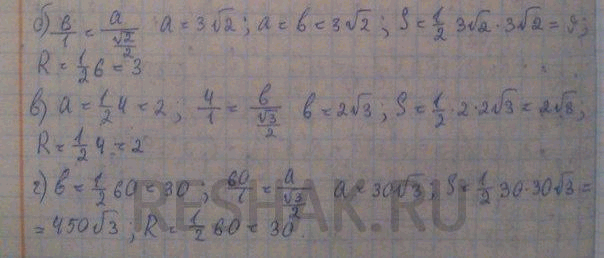 б) 6/1 = a/(√2/2) a = 3√2; a = b = 3√2; S = 1/2 3√2 · 3√2 = 9;
R = 1/2 6 = 3
в) a = 1/2 4 = 2; 4/1 = b/(√3/2) b = 2√3; S = 1/2 · 2 · 2√3 = 2√3;
R = 1/2 4 = 2
г) b = 1/2 60 = 30; 60/1 = a/(√3/2) a = 30√3; S = 1/2 30 · 30√3 =
= 450√3; R = 1/2 60 = 30.
RESHAK.RU